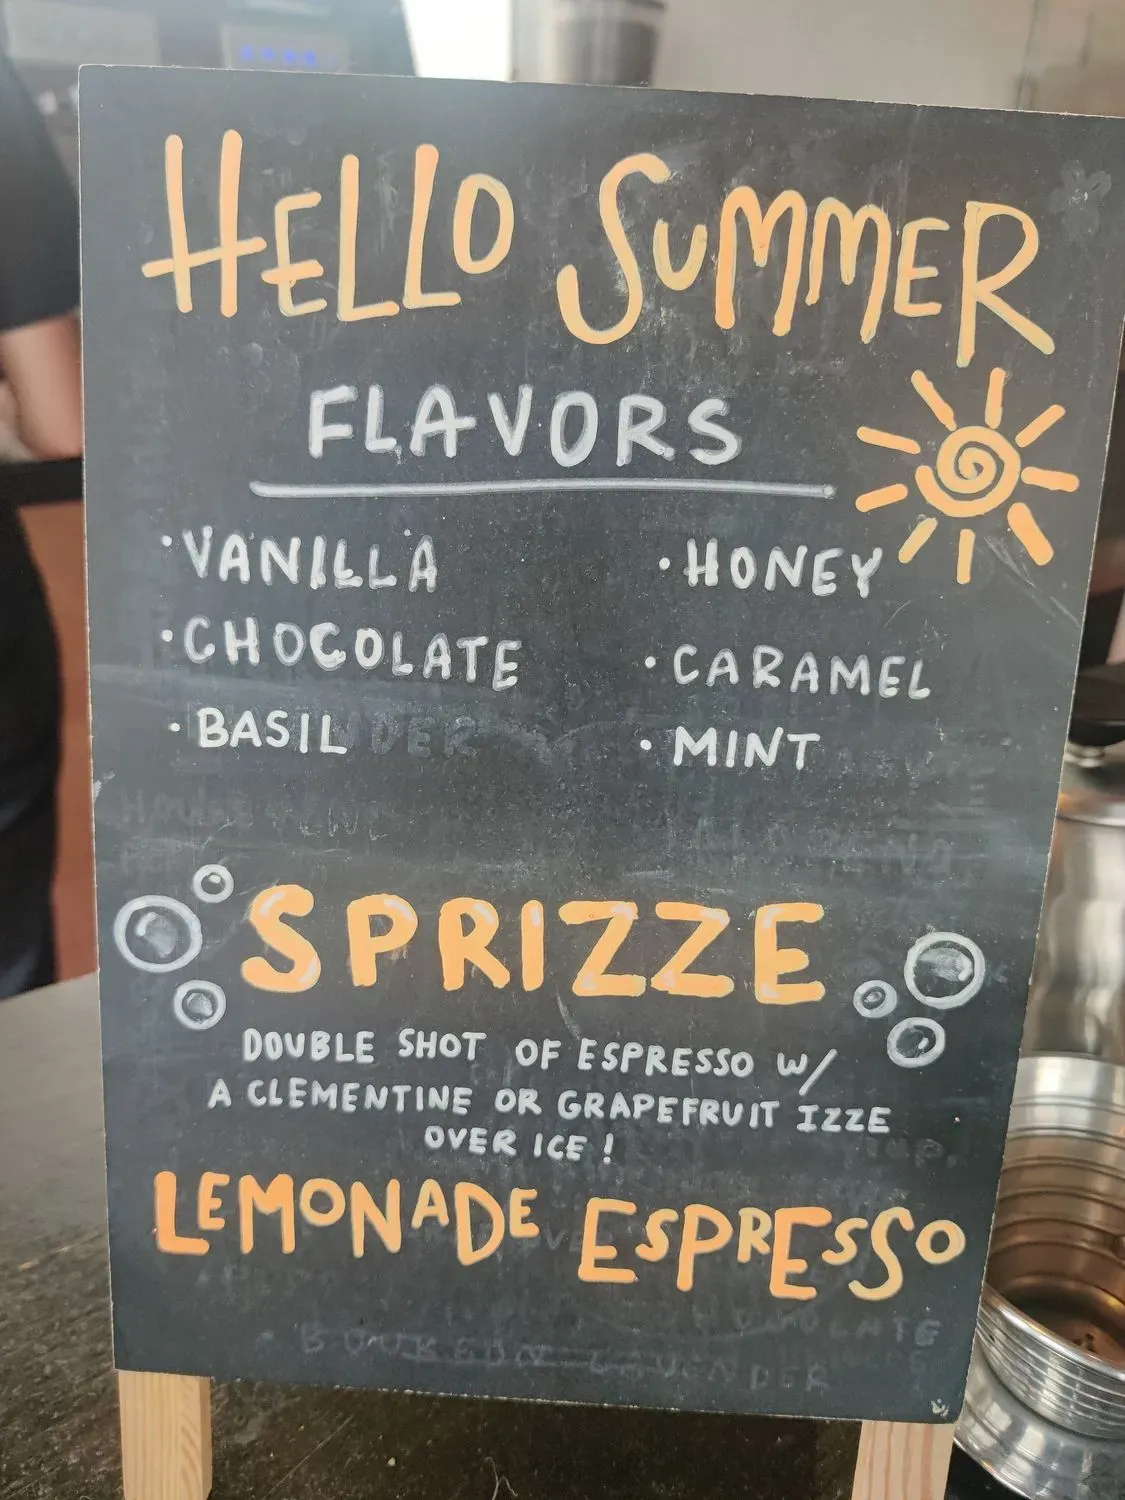 HELLO SUMMER
FLAVORS
· VANILLA
· HONEY
· CHOCOLATE
· CARAMEL
· BASIL
· MINT
SPRIZZE
DOUBLE SHOT OF ESPRESSO W/
A CLEMENTINE OR GRAPEFRUIT IZZE
OVER ICE!
LEMONADE ESPRESSO